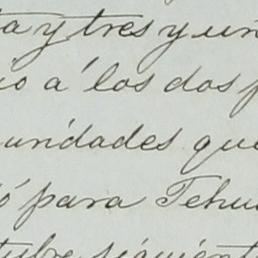 ta y tres y un
io a' los dos p
unidades que
ó para Tehu
tubre siguient